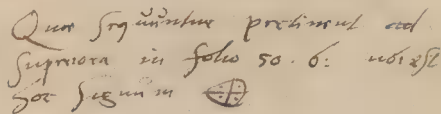 Quae sequuntur pertinent ad
superiora in folio 50. 6: ubi est
hoc signum